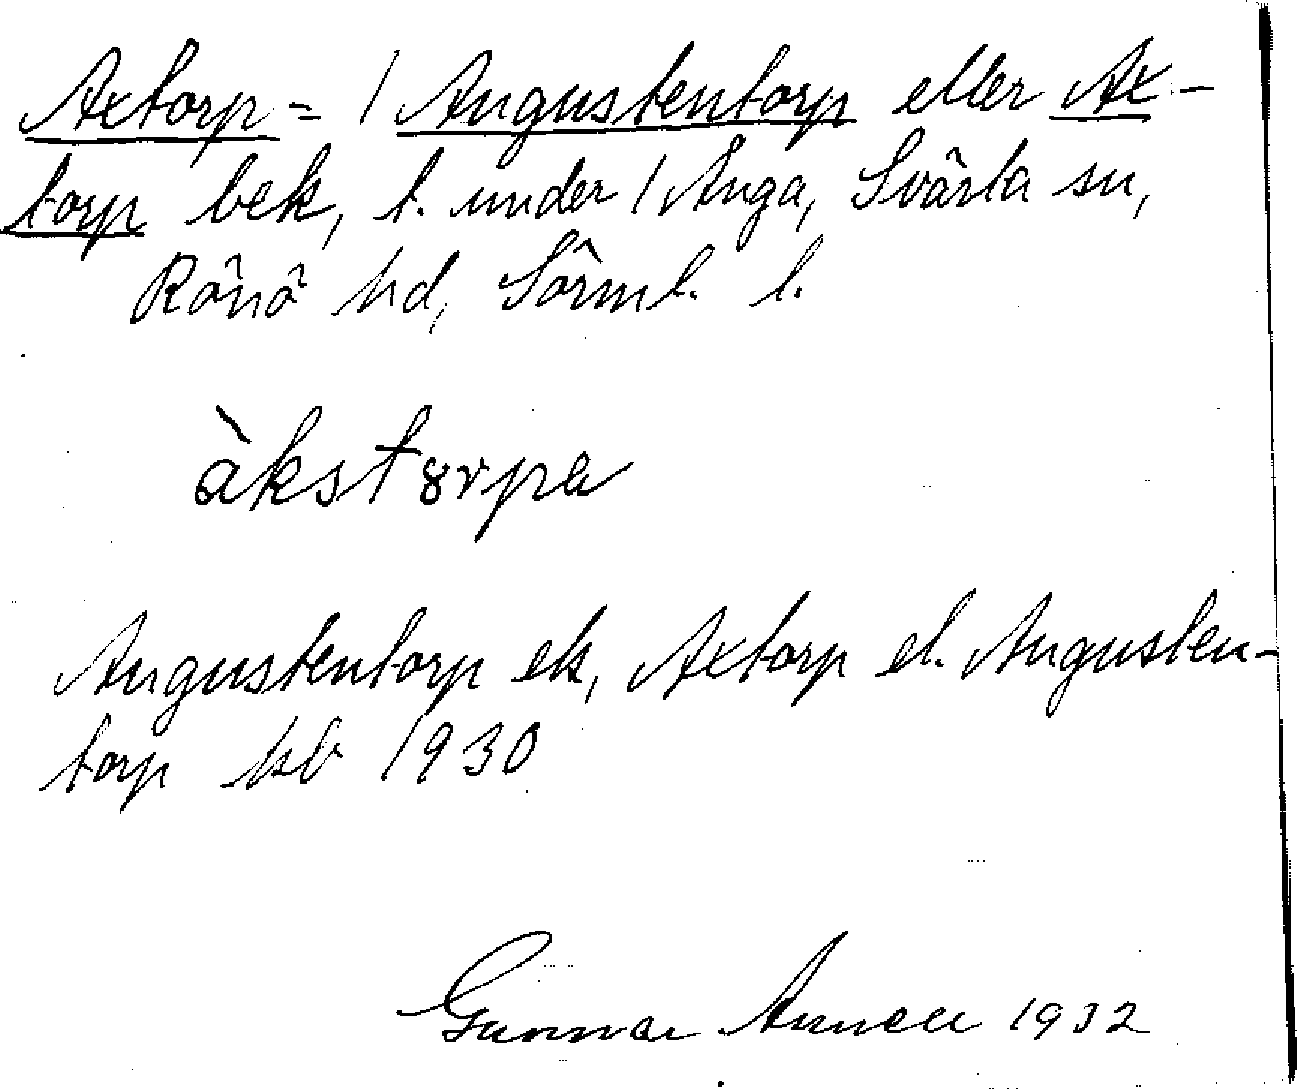 Axtorp = / Augustentorp eller Ax-
torp bek, t. under / Ånga, Svärta sn,
Rönö hd, Sörml. l.
àkstɞrpa
Augustentorp ek, Axtorp el. Augusten-
torp kb 1930
Gunnar Annell 1932